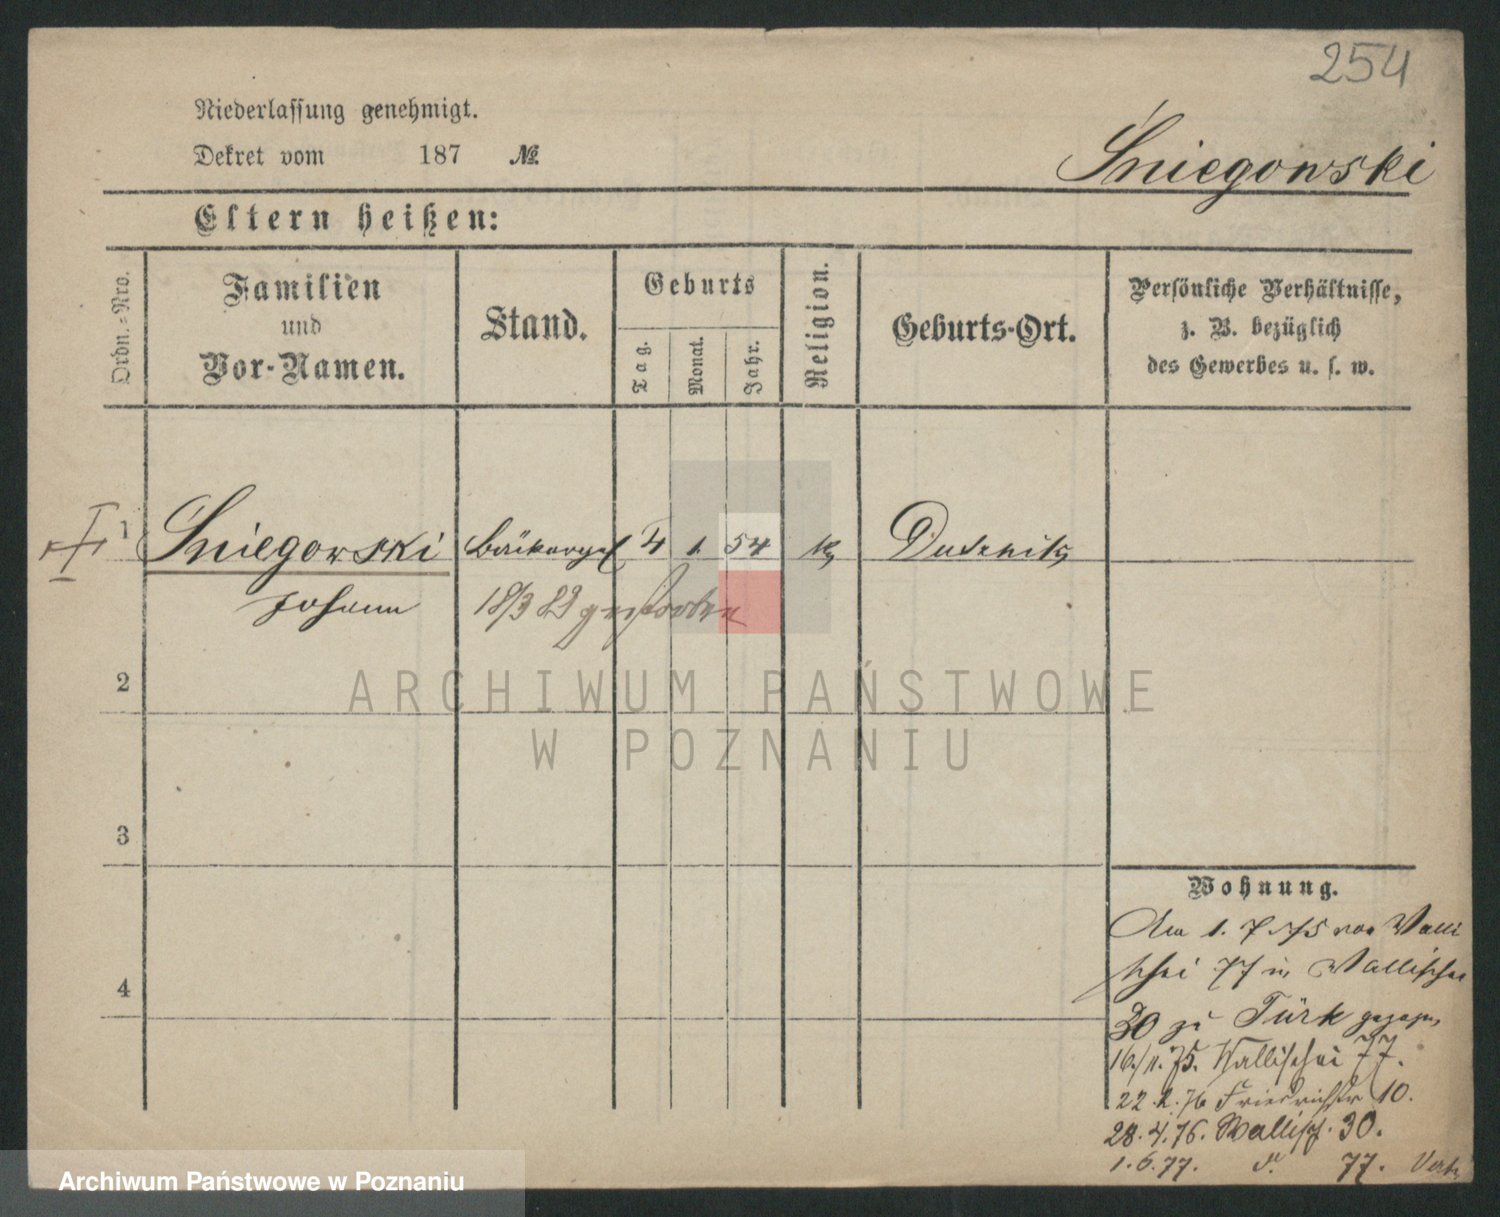 254
Niederlassung genehmigt.
Dekret vom 187 №
Sniegowski
Eltern heißen:
Ordn.-Nro.
Familien
und
Vor-Namen.
Stand.
Geburts
Tag.
Monat.
Jahr.
Religion.
Geburts-Ort.
Persönliche Verhältnisse,
z. B. bezüglich
des Gewerbes u. s. w.
1 Sniegowski Bäckerges 4 1. 54 k Dusznik
Johann 18/3 89 gestorben
2
ARCHIWUM PAŃSTWOWE
W POZNANIU
3
Wohnung.
Am 1. 7. 75 von Walli
schei 77 n. Wallischei
30 zu Türk gezogen
16/11. 75. Wallischei 77.
22. 2. 76 Friedrichstr 10.
28. 4. 76. Wallisch. 30.
1. 6. 77. d. 77.
4
Archiwum Państwowe w Poznaniu